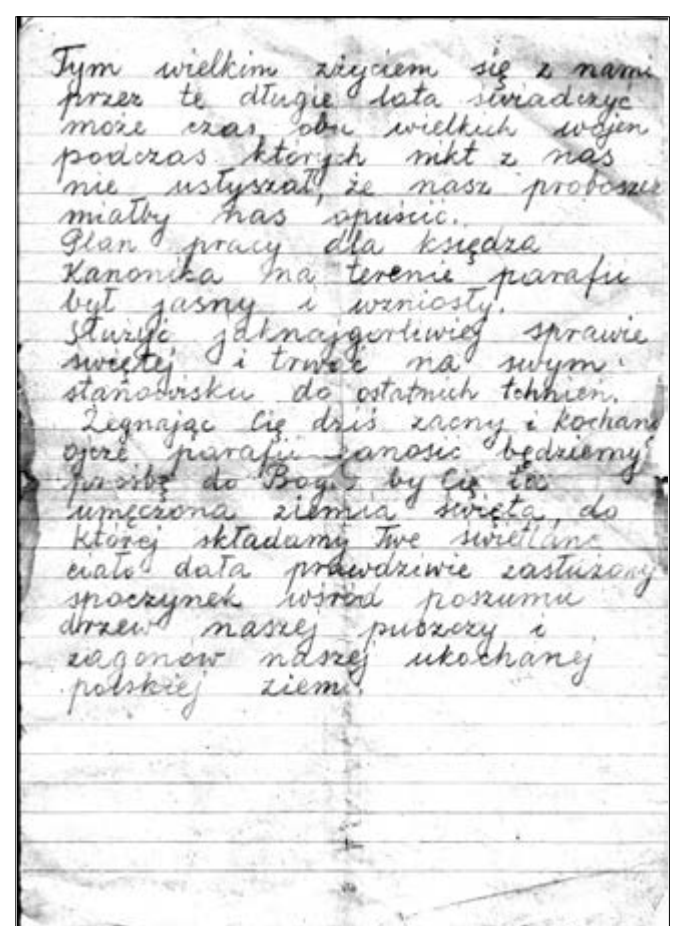 Tym wielkim zżyciem się z nami
przez te długie lata świadczyć
może czas obu wielkich wojen
podczas których nikt z nas
nie usłyszał, że nasz proboszcz
miałby nas opuścić.
Plan pracy dla księdza
Kanonika na terenie parafii
był jasny i wzniosły.
Służyć jaknajgorliwiej sprawie
świętej i trwać na swym
stanowisku do ostatnich tchnień.
Żegnając Cię dziś zacny i kochany
ojcze parafii zanosić będziemy
prośbę do Boga by Cię ta
umęczona ziemia święta, do
której składamy Twe świetlane
ciało dała prawdziwie zasłużony
spoczynek wśród poszumu
drzew naszej puszczy i
zagonów naszej ukochanej
polskiej ziemi.